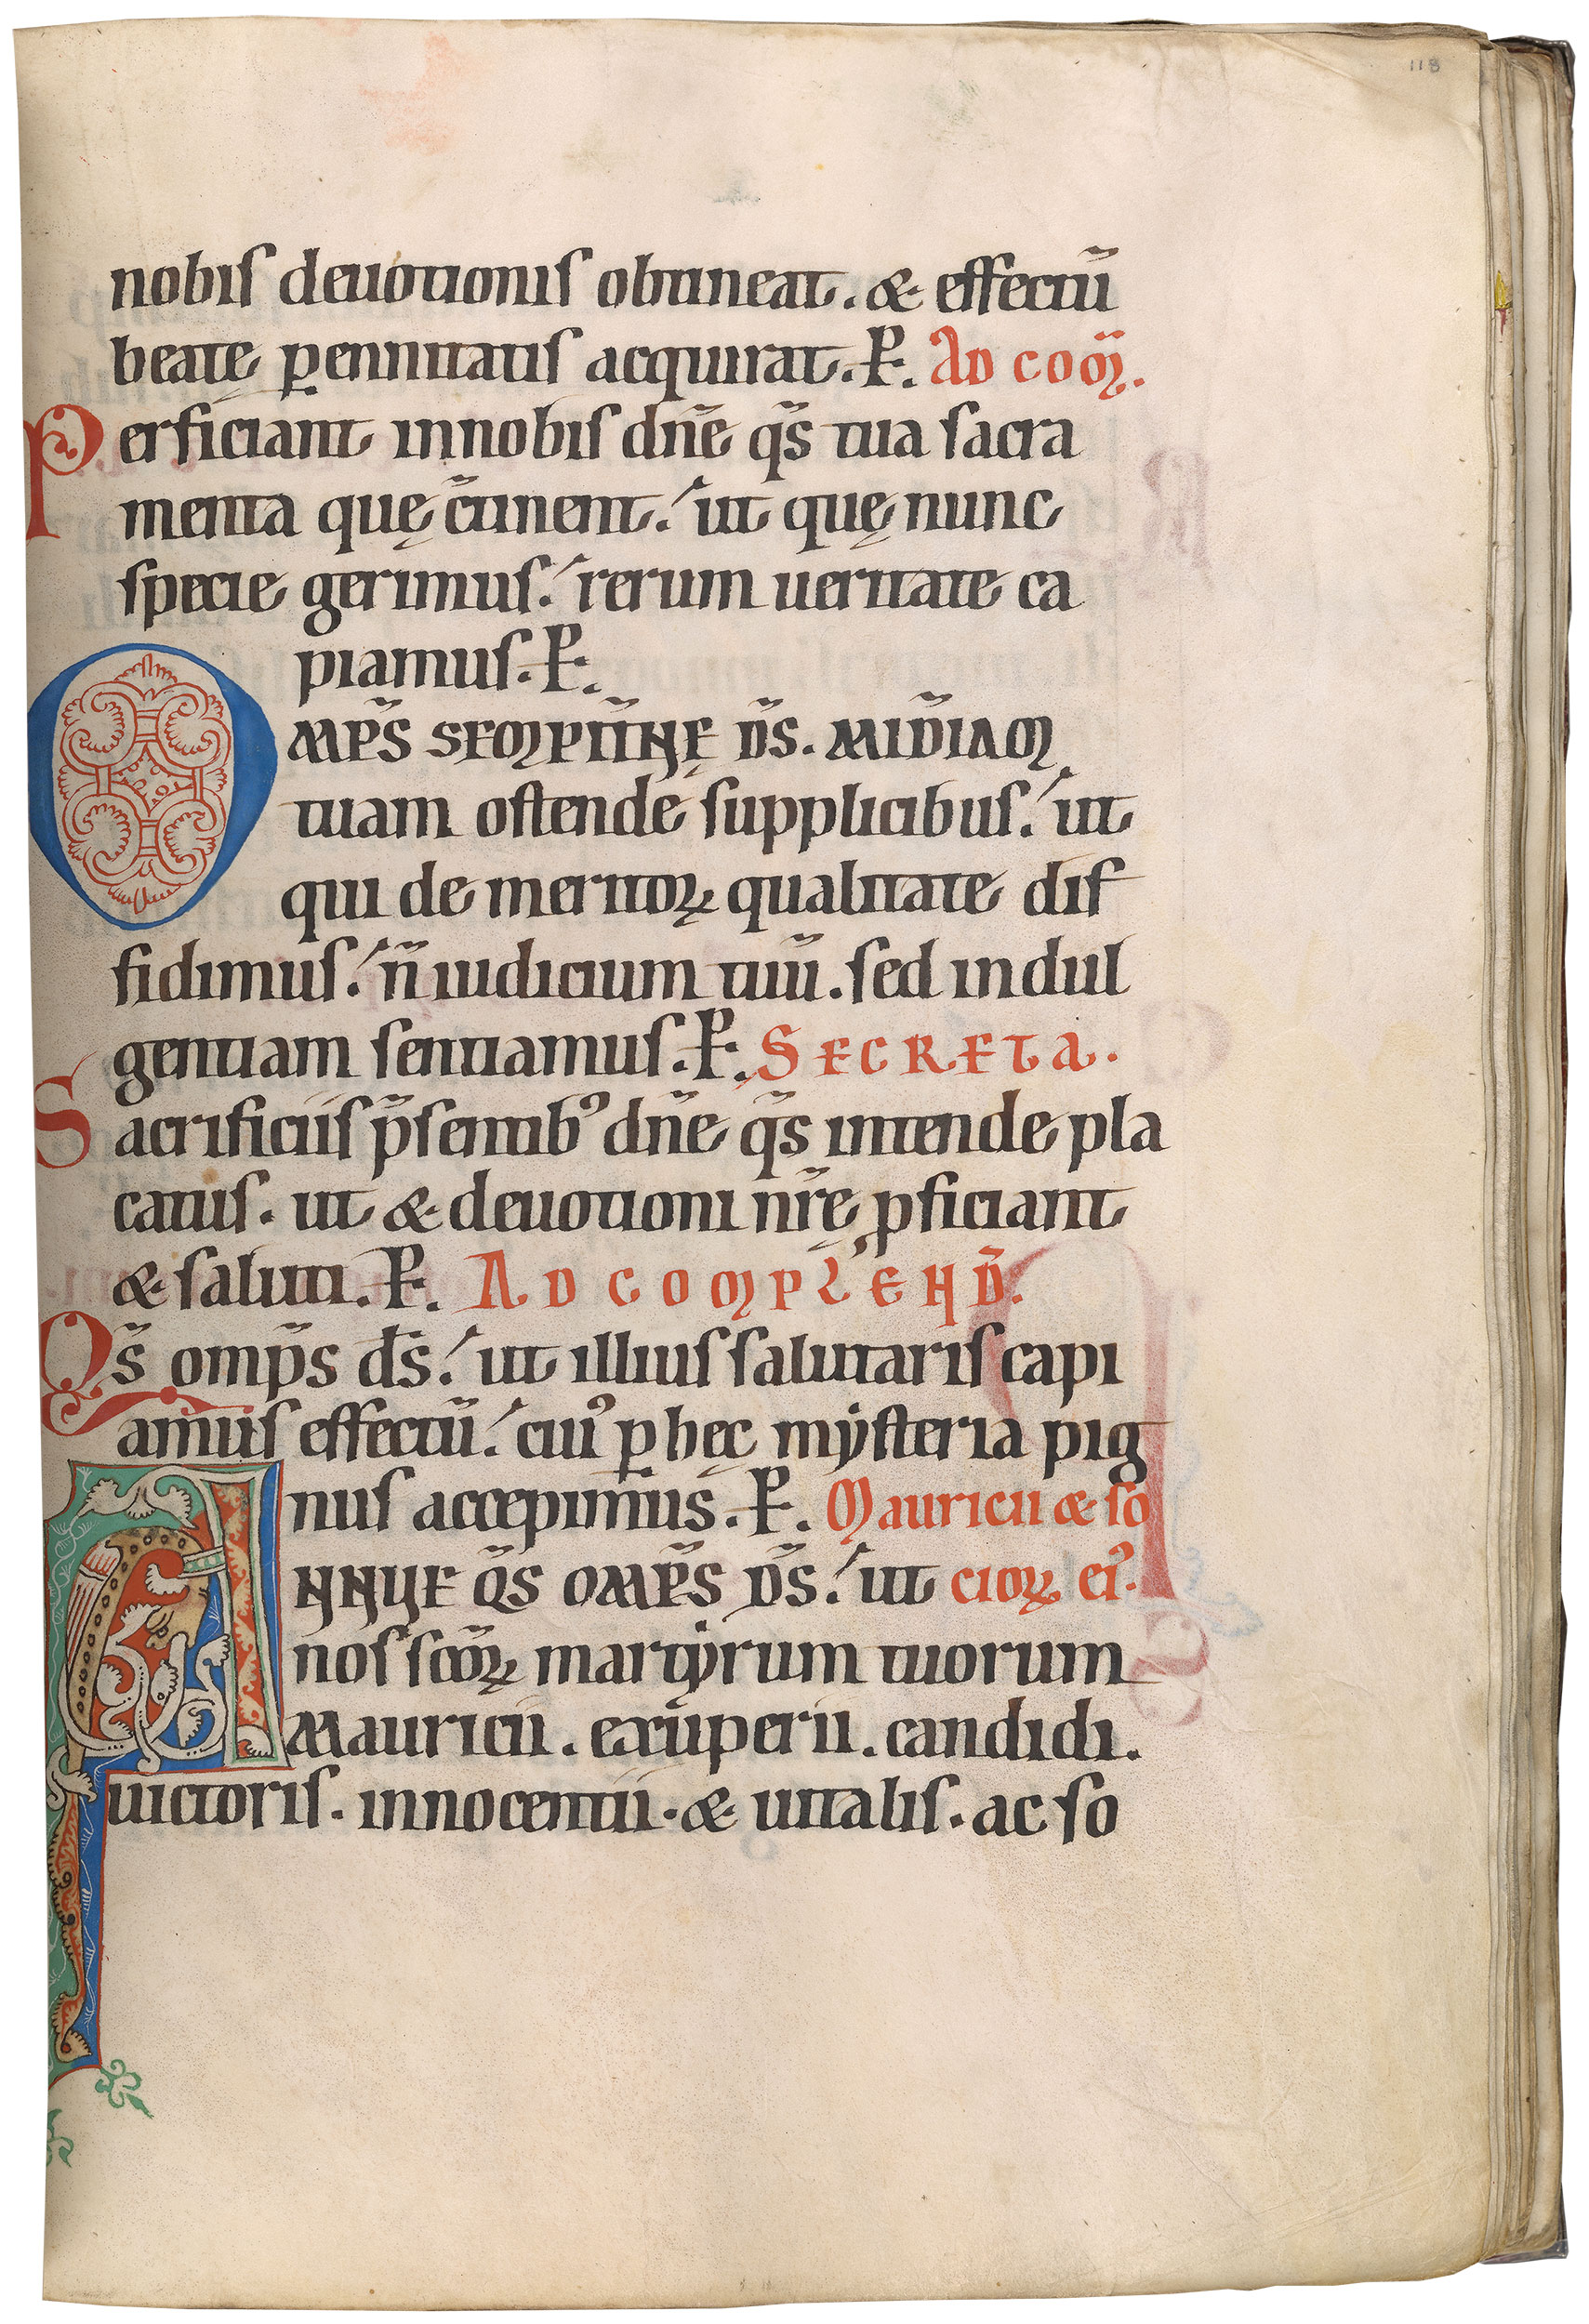 118
nobis deuotionis obtineat. & effectū
beate ꝑennitatis acquirat. P. AD COM̄.
Perficiant innobis dn̄e qs̄ tua sacra
menta quę c̄tinent. ut quę nunc
specie gerimus. rerum ueritate ca
piamus. P.
OMP̄S SEMPIT̄NE D̄S. MIĪDIAM
tuam ostende supplicibus. ut
qui de meritoꝝ qualitate dif
fidimus. n̄ iudicium tuū. sed indul
gentiam sentiamus. P. SECRETA.
Sacrificiis p̄sentibꝰ dn̄e qs̄ intende pla
catus. ut & deuotioni nr̄ę ꝓficiant
& saluti. P. AD COMPLEND̄.
Qs̄ omp̄s ds̄. ut illius salutaris capi
amus effectū. cuiꝰ ꝑ hęc mẏsteria pig
nus accepimus. P. Mauricii & so
ANNUE QS̄ OMP̄S D̄S. ut cioꝝ eiꝰ.
nos sc̄oꝝ martẏrum tuorum
Mauricii. exuperii. candidi.
uictoris. innocentii. & uitalis. ac so